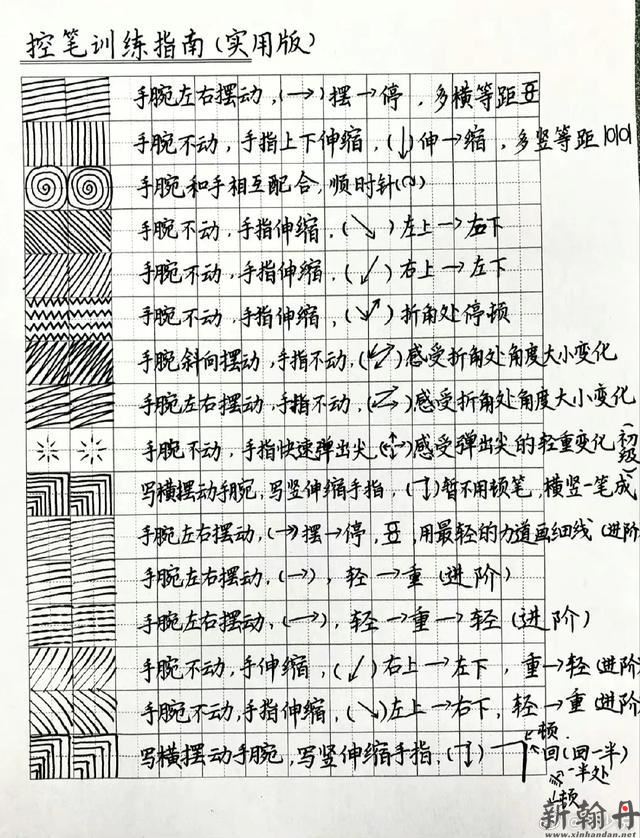 控笔训练指南(实用版)
手腕左右摆动,(→)摆→停,多横等距
手腕不动,手指上下伸缩,(↓)伸→缩,多竖等距
手腕和手相互配合,顺时针
手腕不动,手指伸缩,(↘)左上→右下
手腕不动,手指伸缩,(↙)右上→左下
手腕不动,手指伸缩,折角处停顿
手腕斜向摆动,手指不动,感受折角处角度大小变化
手腕左右摆动,手指不动,感受折角处角度大小变化
手腕不动,手指快速弹出尖,感受弹出尖的轻重变化(初级)
写横摆动手腕,写竖伸缩手指,暂不用顿笔,横竖一笔成
手腕左右摆动,(→)摆→停,用最轻的力道画细线(进阶
手腕左右摆动,(→),轻→重(进阶)
手腕左右摆动,(→),轻→重→轻(进阶)
手腕不动,手伸缩,(↙)右上→左下,重→轻(进阶)
手腕不动,手指伸缩,(↘)左上→右下,轻→重(进阶
写横摆动手腕,写竖伸缩手指,
顿
回(回一半)
一半处
顿
新翰丹
www.xinhandan.net